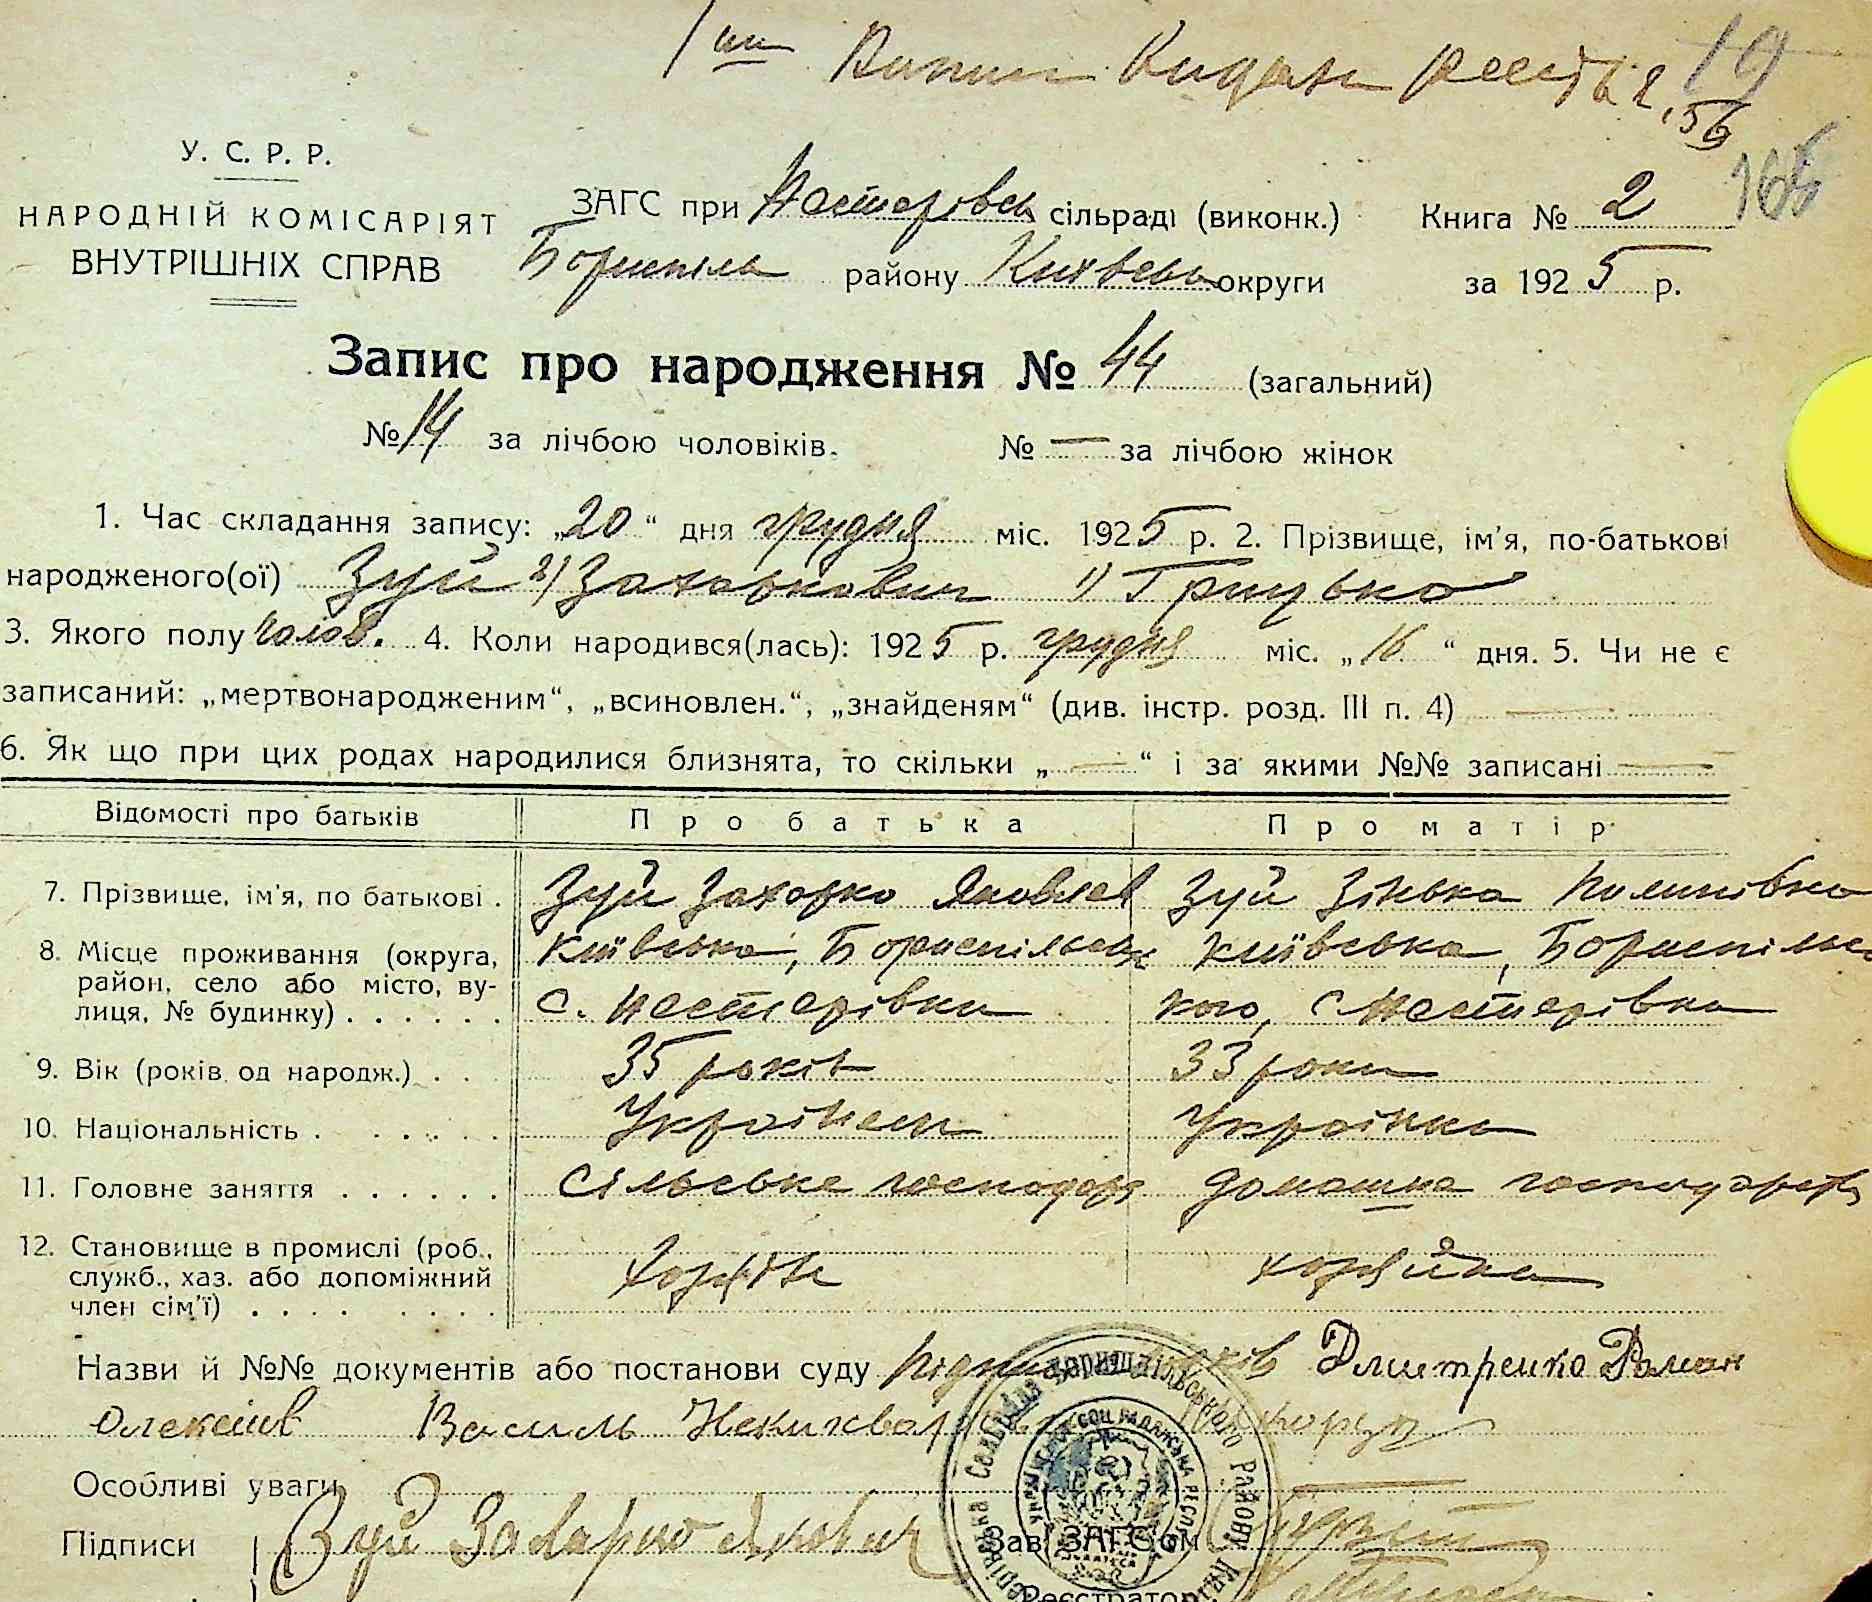 1ши Випис Видан реєстр 2, 56
19
У. С. Р. Р.
165
НАРОДНІЙ КОМІСАРІЯТ
ВНУТРІШНІХ СПРАВ
ЗАГС при Нестерівськ сільраді (виконк.) Книга № 2
Бориспіль району Київськ округи за 1925 р.
Запис про народження № 44 (загальний)
№ 14 за лічбою чоловіків. № — за лічбою жінок
1. Час складання запису: „20“ дня грудня міс. 1925 р. 2. Прізвище, ім'я, по-батькові
народженого(ої) Зуй 2) Захаркович 1) Грицько
3. Якого полу чолов. 4. Коли народився(лась): 1925 р. грудня міс. „16“ дня. 5. Чи не є
записаний: „мертвонародженим“, „всиновлен.“, „знайденям“ (див. інстр. розд. III п. 4) —
6. Як що при цих родах народилися близнята, то скільки „—“ і за якими №№ записані —
Відомості про батьків Про батька Про матір
7. Прізвище, ім'я, по батькові . Зуй Захарко Яковлев Зуй Зінька Пилипівна
8. Місце проживання (округа, Київська, Бориспільськ Київська, Бориспільс
район, село або місто, ву-
лиця, № будинку) . . . . . . с. Нестерівка кого, с Нестерівка
9. Вік (років од народж.) . . 35 років 33 роки
10. Національність . . . . . . Українець Українка
11. Головне заняття . . . . . . сільське господар домашнє господарств
12. Становище в промислі (роб., хазяїн хазяйка
служб., хаз. або допоміжний
член сім'ї) . . . . . . . .
Назви й №№ документів або постанови суду Дмитренко Роман
Олексіїв Василь
Особливі уваги —
Підписи Зуй Захарко Якович Зав. ЗАГС'ом
Реєстратор